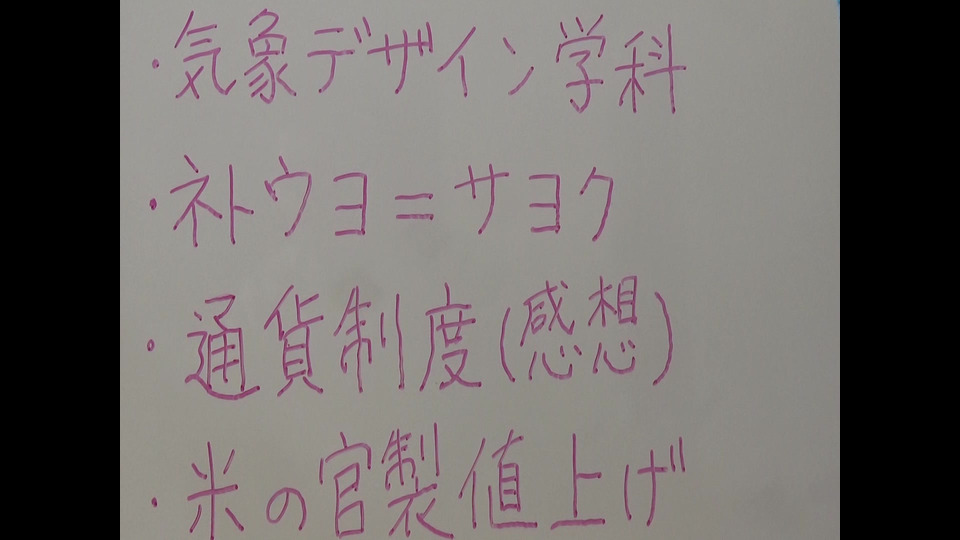 ・気象デザイン学科
・ネトウヨ=サヨク
・通貨制度(感想)
・米の官製値上げ